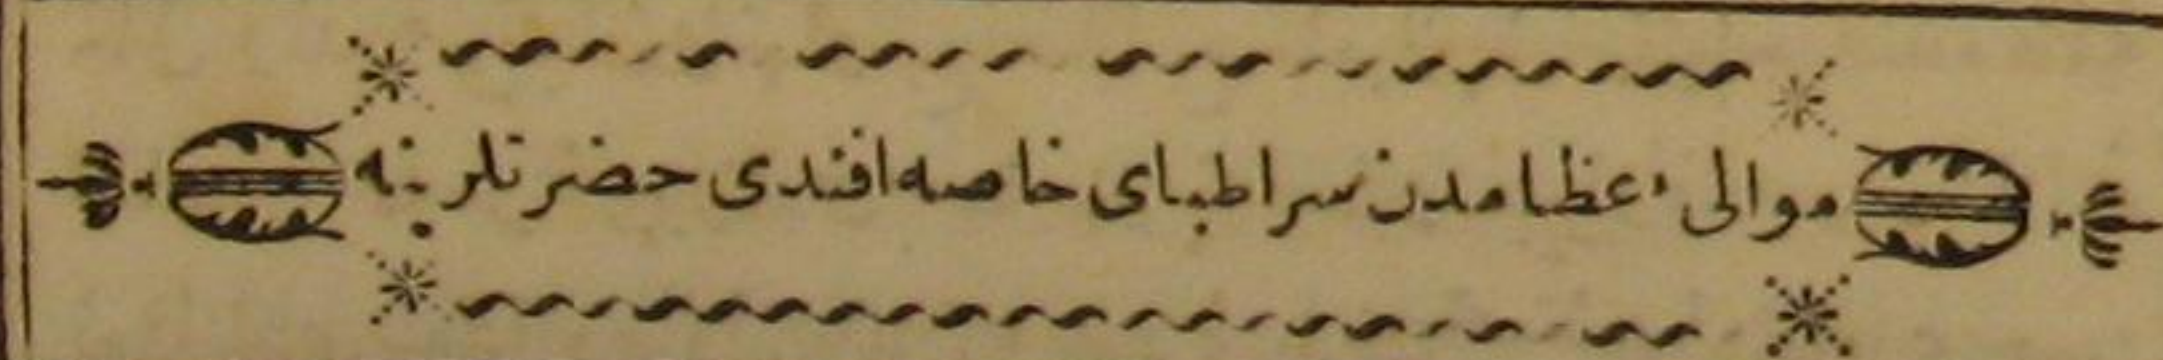 موالیء عظامدن سر اطبای خاصه افندی حضرتلرینه